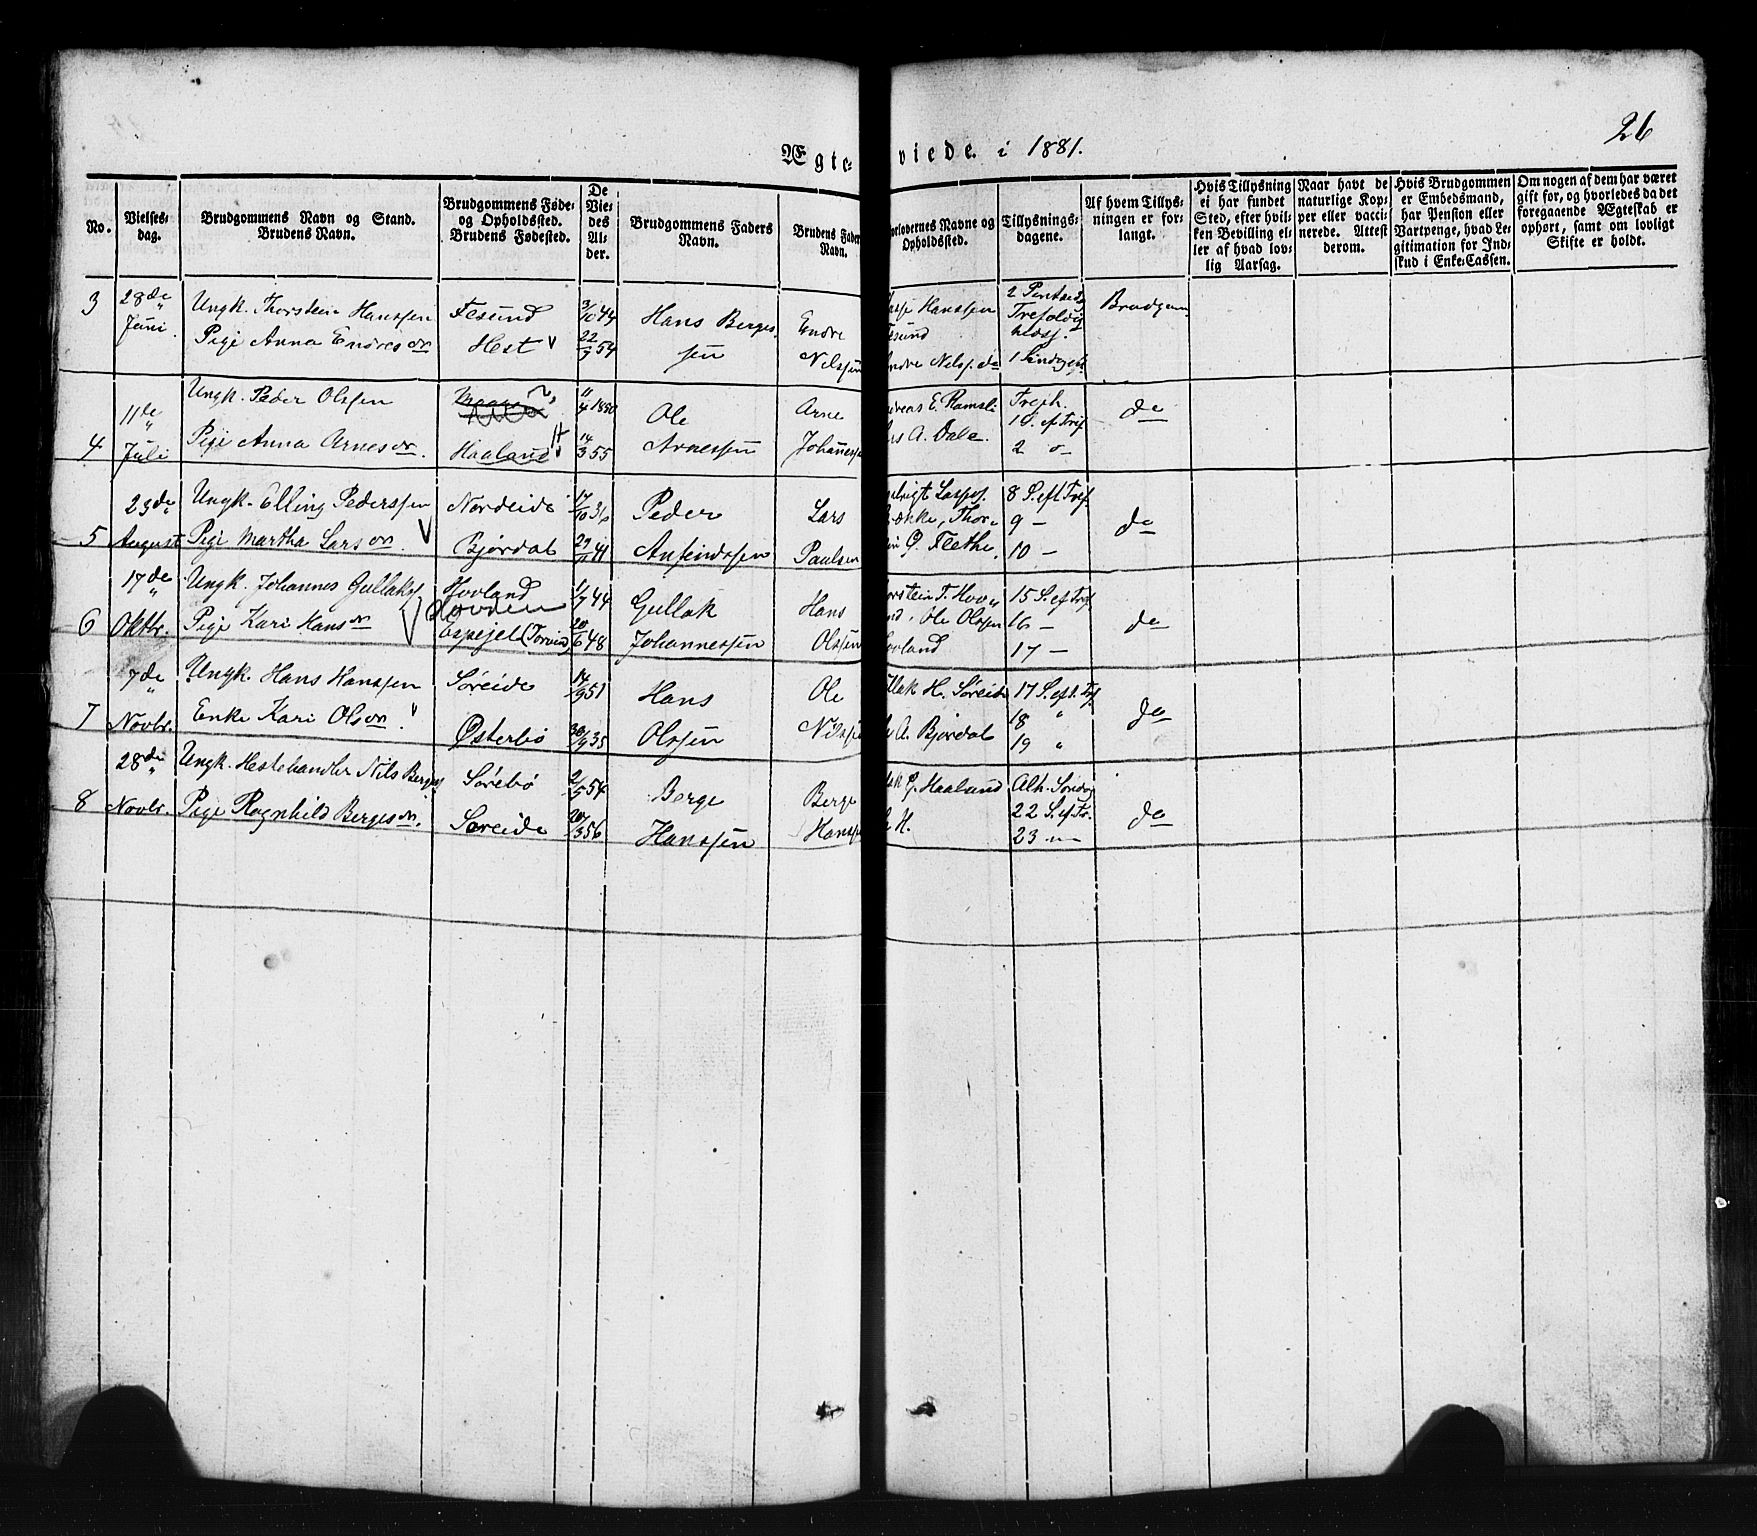 26
Ægte- viede. i 1881.
No.
Vielses-
dag.
Brudgommens Navn og Stand.
Brudens Navn.
Brudgommens Føde-
og Opholdssted.
Brudens Fødested.
De
Vie-
des
Al-
der.
Brudgommens Faders
Navn.
Brudens Faders
Navn.
orlovernes Navne og
Opholdssted.
Tillysnings-
dagene.
Af hvem Tillys-
ningen er for-
langt.
Hvis Tillysning
ei har fundet
Sted, efter hvil-
ken Bevilling el-
ler af hvad lov-
lig Aarsag.
Naar havt de
naturlige Kop-
per eller vacci-
nerede. Attest
derom.
Hvis Brudgommen
er Embedsmand,
har Pension eller
Vartpenge, hvad Le-
gitimation for Ind-
skud i Enke-Cassen.
Om nogen af dem har været
gift før, og hvorledes da det
foregaaende Ægteskab er
ophørt, samt om lovligt
Skifte er holdt.
3
28de
Juni.
Ungk. Thorstein Hanssen
Pige Anna Endresdr
Fesund
Hest
3/10 44
22/9 54
Hans Berges
sen
Endre
Nilssen
Hanssen
esund
ndre Nilss. do
2 Pintsedg
Trefoldig
hedss.
1 Søndag eft
Brudgom
4
11de
Juli
Ungk. Peder Olssen
Pige Anna Arnesdr.
Haaland
11/4 1850
14/3 55
Ole
Arnessen
Arne
Johannessen
dreas E. Ramsli
A. Dale.
Trefh.
1 S. ef Tref
2 do
do
5
23de
August
Ungk. Elling Pederssen
Pige Martha Larsdr.
Nordeide
Bjørdal
17/10 31
29/11 41
Peder
Ansindssen
Lars
Paulsen
Larss.
ække, Thor-
P. Flethe.
8 S. eft Tref.
9 —
10 —
do
6
17de
Oktbr.
Ungk. Johannes Gullakss
Pige Kari Hansdr
Hovland
Hovden
Espejel (Torvund)
1/7 44
20/6 48
Gullak
Johannessen
Hans
Olssen
orstein T. Hov-
nd, Ole Olssen
ovland
15 S. ef Tref
16 —
17 —
do
7
7de
Novbr.
Ungk. Hans Hanssen
Enke Kari Olsdr.
Søreide
Østerbø
14/9 51
30/9 35
Hans
Olssen
Ole
Nilssen
llak H. Søreide
A. Bjørdal
17 S. eft. Tref
18 "
19 "
do
8
28de
Novbr.
Ungk. Hestehandler Nils Bergess
Pige Ragnhild Bergesdr.
Sørebø
Søreide
2/5 54
20/3 56
Berge
Hanssen
Berge
Hanssen
P. Haaland
H.
Alh. Søndag
22 S. ef. Tr.
23 —
do